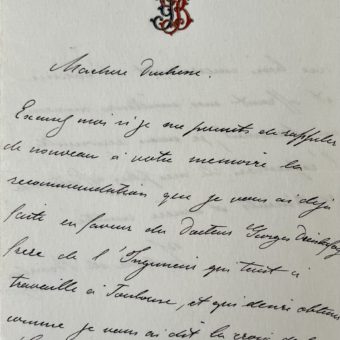 Ma chère Duchesse.
Excusez moi si je me permets de rappeler
de nouveau à votre memoire la
recommandation que je vous ai déjà
faite en faveur du Docteur Georges
frère de l'Ingenieur qui
travaille à Toulouse, et qui desire obtenir
comme je vous ai dit la croix de la